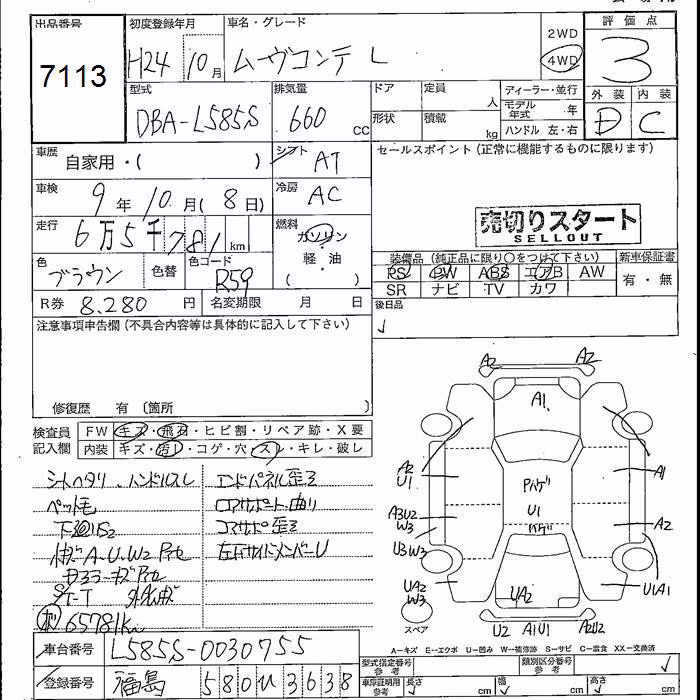 出品番号 初度登録年月 車名・グレード 評価点
7113 H24 10月 ムーヴコンテ L 2WD 4WD 3
型式 排気量 ドア 定員 人 ディーラー・並行 外装 内装
DBA-L585S 660 CC 形状 積載 kg モデル年式 年 D C
ハンドル 左・右
車歴 自家用・( ) シフト AT セールスポイント(正常に機能するものに限ります)
車検 9年 10月(8日) 冷房 AC
走行 6万5千781km 燃料 ガソリン
軽・油
( )
売切りスタート
SELLOUT
色 ブラウン 色替 色コード R59
R券 8,280円 名変期限 月 日
装備品(純正品に限り○をつけて下さい) 新車保証書
PS PW ABS エアB AW 有・無
SR ナビ TV カワ
後日品
注意事項申告欄(不具合内容等は具体的に記入して下さい)
修復歴 有〔箇所 〕
検査員記入欄 FW キズ・飛石・ヒビ割・リペア跡・X要
内装 キズ・汚れ・コゲ・穴・スレ・キレ・破レ
シートヘタリ、ハンドルスレ
ペット毛
下廻りS2
エンドパネル歪ミ
コアサポート曲り
コアサポ歪ミ
左右サイドメンバーU
65781km
A2 A2
A1
A2 U1 A1
Pハゲ
U1
ハゲ
A3U2 W3 A2
U3W3
UA2 W3 UA2 U1A1
スペア U2 A1U1 A2U2
A…キズ E…エクボ U…凹み W…補修跡 S…サビ C…腐食 XX…交換済
車台番号 L585S-0030755
登録番号 福島 580 ひ 3638
型式指定番号 参考 類別区分番号 参考
車庫証明用 参考 長さ cm 幅 cm 高さ cm